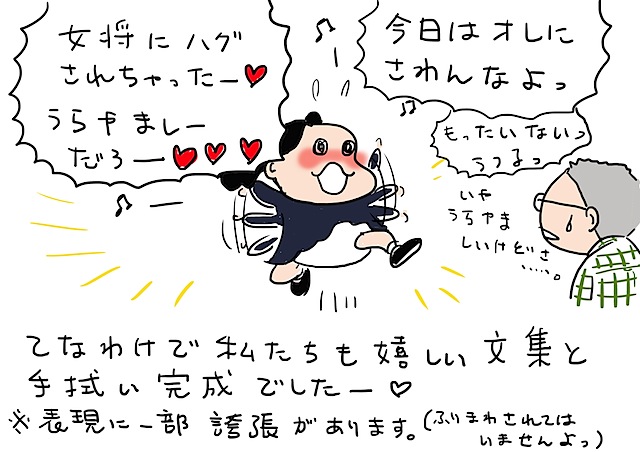 女将にハグ
されちゃったー
うらやましー
だろー
今日はオレに
さわんなよっ
もったいないっ
うつるっ
いや
うらやま
しいけどさ
……。
てなわけで私たちも嬉しい文集と
手拭い完成でしたー♡
※表現に一部誇張があります。(ふりまわされては
いませんよっ)